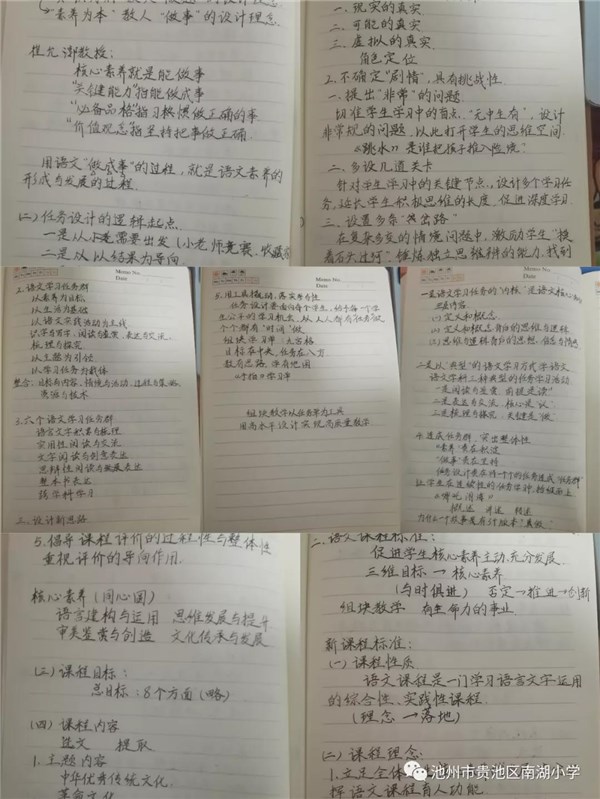 "素养为本"教人"做事"的设计理念.
崔允漷教授:
核心素养就是能做事
"关键能力"指能做成事
"必备品格"指习惯做正确的事
"价值观念"指坚持把事做正确
用语文"做成事"的过程,就是语文素养的
形成与发展的过程.
(二)任务设计的逻辑起点
一是从小处需要出发(小老师竞赛、收藏家
二是从以结果为导向.
一、现实的真实.
二、可能的真实
三、虚拟的真实.
角色定位
2.不确定"剧情",具有挑战性.
一、提出"非常"的问题.
切准学生学习中的盲点,"无中生有",设计
非常规的问题,以此打开学生的思维空间.
《跳水》是谁把孩子推入险境?
二、多设几道关卡
针对学生学习中的关键节点,设计多个学习任
务,延长学生积极思维的长度,促进深度学习.
三、设置多条"出路"
在复杂多变的情境问题中,激励学生"摸
着石头过河",锤炼独立思维辨的能力,找到
Memo No.
Date
2.语文学习任务群
以素养为目标
以生活为基础
以语文实践活动为主线
识字与写字、阅读与鉴赏、表达与交流、
梳理与探究
以主题为引领
以学习任务为载体
整合:目标与内容、情境与活动、过程与策略、
资源与技术
3.六个语文学习任务群
语言文字积累与梳理
实用性阅读与交流
文学阅读与创意表达
思辨性阅读与表达
整本书阅读
跨学科学习
三、设计新思路
Memo No.
Date
任务设计要面向每个学生,给予每一个学
生公平的学习机会,从人人都有任务做
个个都有"时间"做
组块学习单:九宫格
目标在中央,任务在八方
教有思路,学有地图
组块教学以任务单为工具
用高水平设计实现高质量教学.
Memo No.
Date
一是语文学习任务的"内核"是语文核心知
(1)定义和概念
(2)定义和概念背后的思维与道理
(3)思维与道理背后的思想、信念与情感
二是以"典型"的语文学习方式学语文
语文学科三种典型的任务学习活动
一是阅读与鉴赏,前提是"读"
二是表达与交流,核心是"说"
三是梳理与探究,关键是"做"
4.连成任务群,突出整体性
"素养"贵在积淀
"做事"贵在坚持
让学生在连续性的任务学习中,拾级而上
概述 讲述 转述
5.倡导课程评价的过程性与整体性
重视评价的导向作用.
核心素养(同心圆)
语言建构与运用 思维发展与提升
审美鉴赏与创造 文化传承与发展
(三)课程目标:
总目标:8个方面(略)
(四)课程内容
过文 提取
1.主题内容
中华优秀传统文化
革命文化
二.语文课程标准:
促进学生核心素养主动、充分发展.
三维目标→核心素养
(与时俱进) 否定→推进→创新
组块教学 有生命力的事业
新课程标准:
(一)课程性质
语文课程是一门学习语言文字运用
的综合性、实践性课程.
(理念→落地)
(二)课程理念:
1.立足全体
挥语文课程育人功能.
池州市贵池区南湖小学